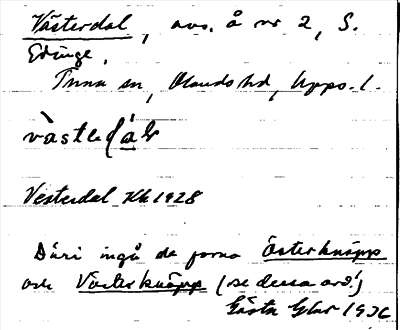 Västerdal, avs. å nr 2, S.
Edinge,
Tuna sn, Olands hd, Upps. l.
Vesterdal Kb 1928
Däri ingå de forna Österknäpp
och Västerknäpp (se dessa ord!)
Gösta 1936